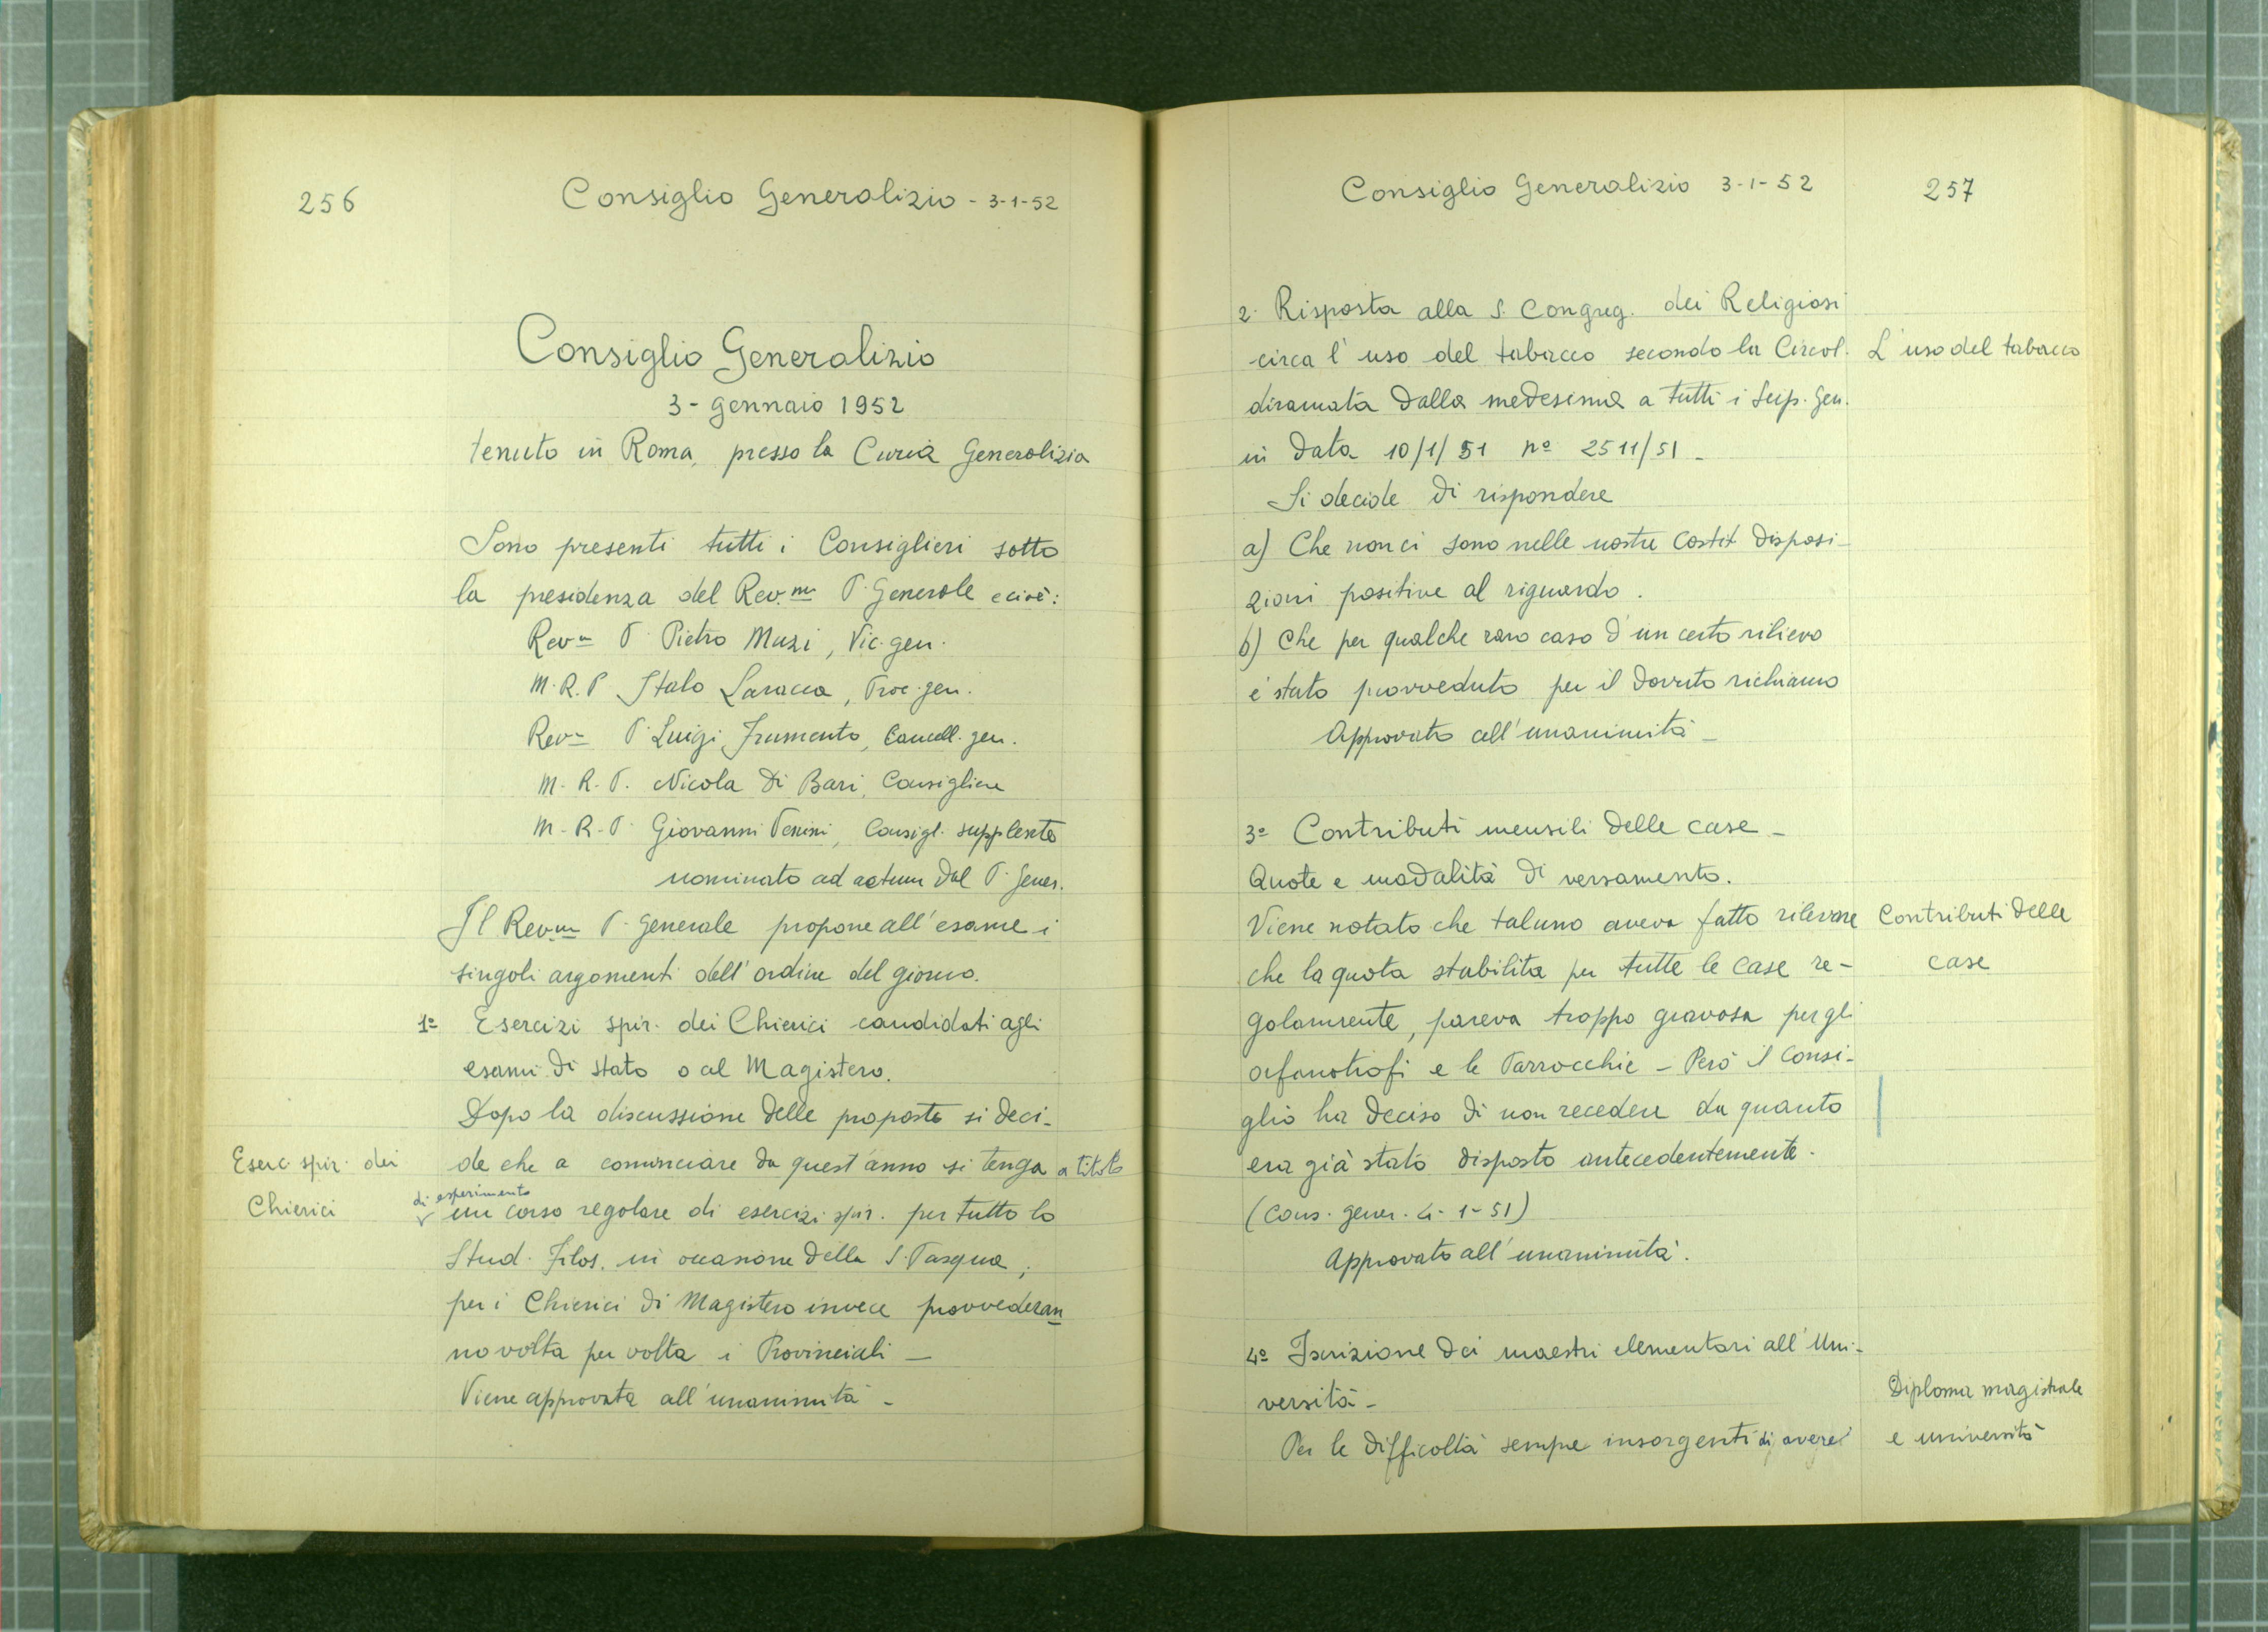 256
Consiglio Generalizio - 3-1-52
Consiglio Generalizio
3 - gennaio 1952
tenuto in Roma, presso la Curia Generalizia
Sono presenti tutti i Consiglieri sotto
la presidenza del Rev.mo P. Generale e cioè:
Rev.mo P. Pietro Muzi, Vic. gen.
M. R. P. Italo Laracca, Proc. gen.
Rev.mo P. Luigi Frumento, Cancell. gen.
M. R. P. Nicola Di Bari, Consigliere
M. R. P. Giovanni Venini, Consigl. supplente
nominato ad actum dal P. Gener.
Il Rev.mo P. Generale propone all'esame i
singoli argomenti dell'ordine del giorno.
1º Esercizi spir. dei Chierici candidati agli
esami di stato o al Magistero.
Dopo la discussione delle proposte si deci-
Eserc. spir. dei
Chierici
de che a cominciare da quest'anno si tenga a titolo
di esperimento
un corso regolare di esercizi spir. per tutto lo
Stud. Filos. in occasione della S. Pasqua;
per i Chierici di Magistero invece provvederan
no volta per volta i Provinciali -
Viene approvata all'unanimità -
Consiglio Generalizio 3-1-52
257
2. Risposta alla S. Congreg. dei Religiosi
circa l'uso del tabacco secondo la Circol.
L'uso del tabacco
diramata dalla medesima a tutti i Sup. Gen.
in data 10/1/51 nº 2511/51 -
Si decide di rispondere
a) Che non ci sono nelle nostre Costit disposi-
zioni positive al riguardo.
b) Che per qualche raro caso d'un certo rilievo
e' stato provveduto per il dovuto richiamo
Approvato all'unanimità -
3º Contributi mensili delle case -
Quote e modalità di versamento.
Viene notato che taluno aveva fatto rilevare
Contributi delle
case
che la quota stabilita per tutte le case re-
golarmente, pareva troppo gravosa per gli
orfanotrofi e le Parrocchie - Però il Consi-
glio ha deciso di non recedere da quanto
era già stato disposto antecedentemente.
(Cons. gener. 4-1-51)
Approvato all'unanimità.
4º Iscrizione dei maestri elementari all'Uni-
versità -
Diploma magistrale
e università
Per le difficoltà sempre insorgenti di avere